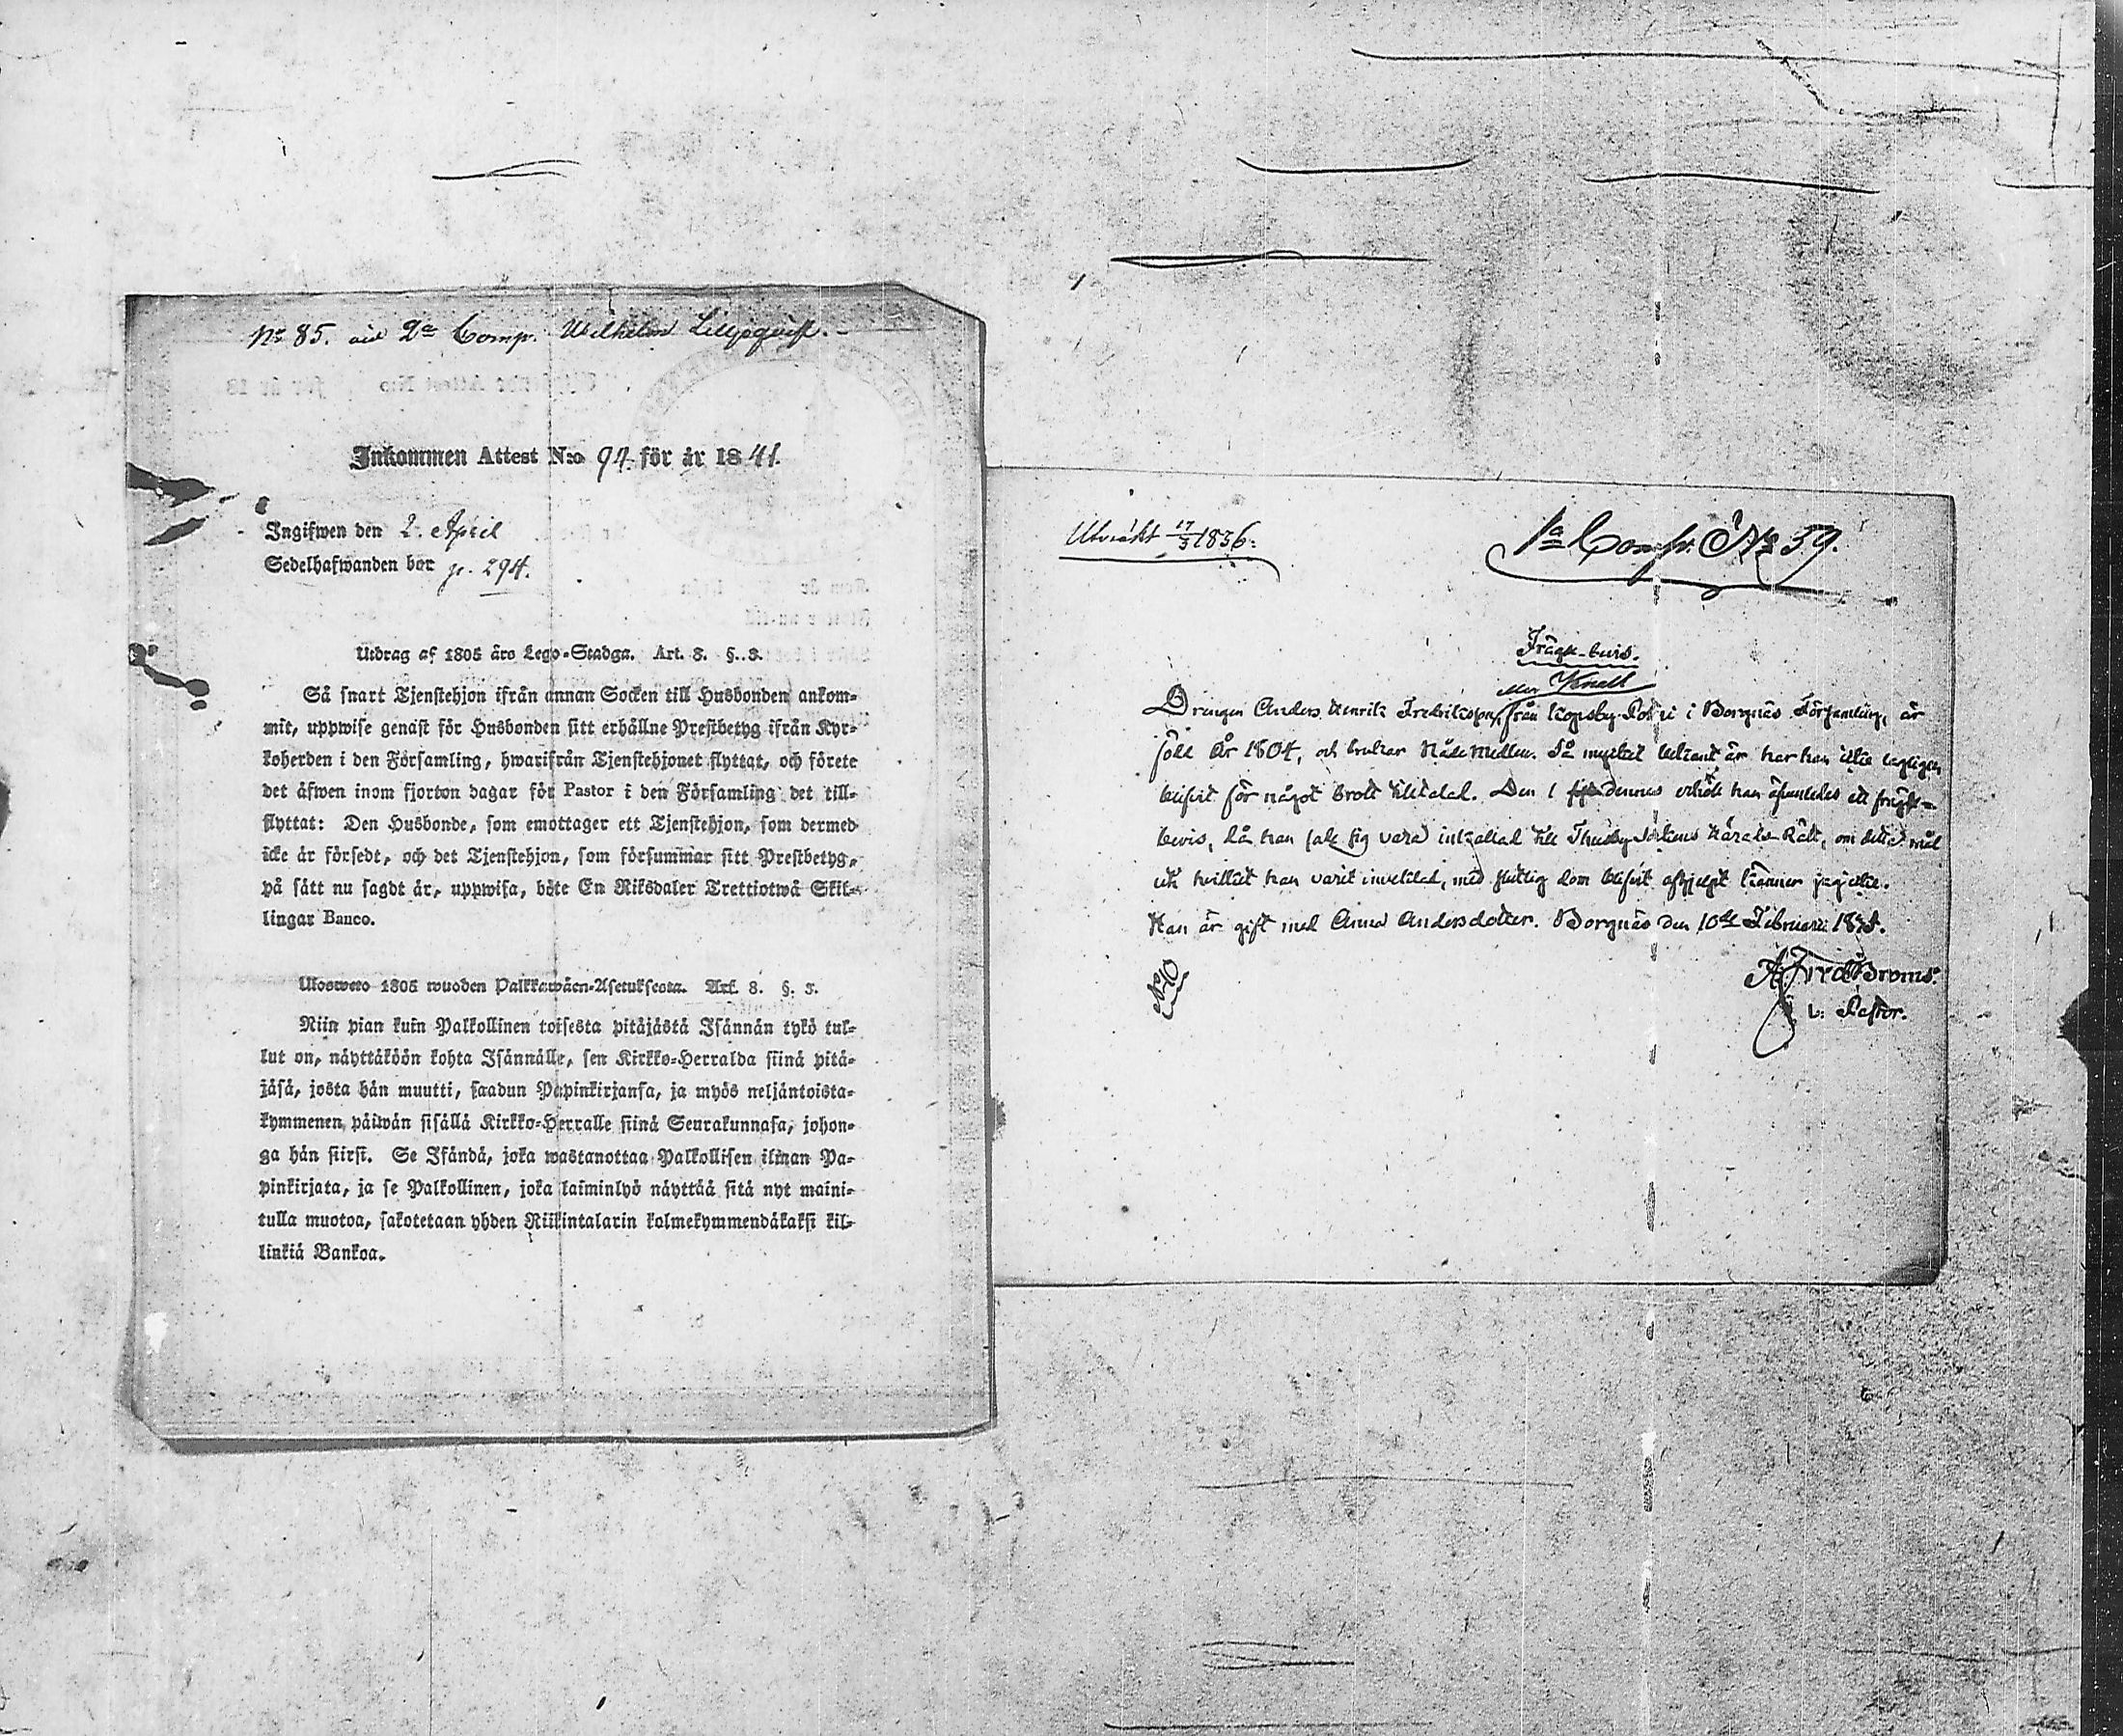 No 85. vid 2a Comp. Wilhelm Liljeqvist.
Inkommen Attest N:o 94. för år 1841.
Ingifwen den 2. April
Sedelhafwanden bor p. 294.
Utdrag af 1805 års Lego-Stadga. Art. 3. §. 3.
Så snart Tjenstehjon ifrån annan Socken till Husbonden ankom-
mit, uppwise genast för Husbonden sitt erhållne Prestbetyg ifrån Kyr-
koherden i den Församling, hwarifrån Tjenstehjonet flyttat, och förete
det äfwen inom fjorton dagar för Pastor i den Församling det till-
flyttat: Den Husbonde, som emottager ett Tjenstehjon, som dermed
icke är försedt, och det Tjenstehjon, som försummar sitt Prestbetyg,
på sätt nu sagdt är, uppwisa, böte En Riksdaler Trettiotwå Skil-
lingar Banco.
Uloswето 1805 wuoden Palkkawäen-Asetuksesta. Art. 3. §. 3.
Niin pian kuin Palkollinen toisesta pitäjästä Isännän tykö tul-
lut on, näyttäköön kohta Isännälle, sen Kirkko-Herralda siinä pitä-
jäsä, josta hän muutti, saadun Papinkirjansa, ja myös neljäntoista-
kymmenen päiwän sisällä Kirkko-Herralle siinä Seurakunnasa, johon-
ga hän siirsi. Se Isändä, joka wastanottaa Palkollisen ilman Pa-
pinkirjata, ja se Palkollinen, joka laiminlyö näyttää sitä nyt maini-
tulla muotoa, sakotetaan yhden Riikintalarin kolmekymmendäkaksi kil-
linkiä Bankoa.
Utväckt 17/3 1836.
1a Comp. No 39.
Frägde-bevis.
eller Knall
Drengen Anders Henrik Fredriksson, från Kopsby i Borgnäs Församling, är
född År 1804, och brukar Nådemedlen. Så mycket bekant är har han icke lagligen
blifvit för något brott tilltalad. Den 1 dennes erhöll han äfvenledes ett frägde-
bevis, då han sade sig vara inkallad till Thusby Sockens Härads-Rätt, om detta mål
uti hvilket han varit invecklad, med slutlig dom blifvit afhjelpt känner jag icke.
Han är gift med Anna Andersdotter. Borgnäs den 10de Februari
v. Pastor.